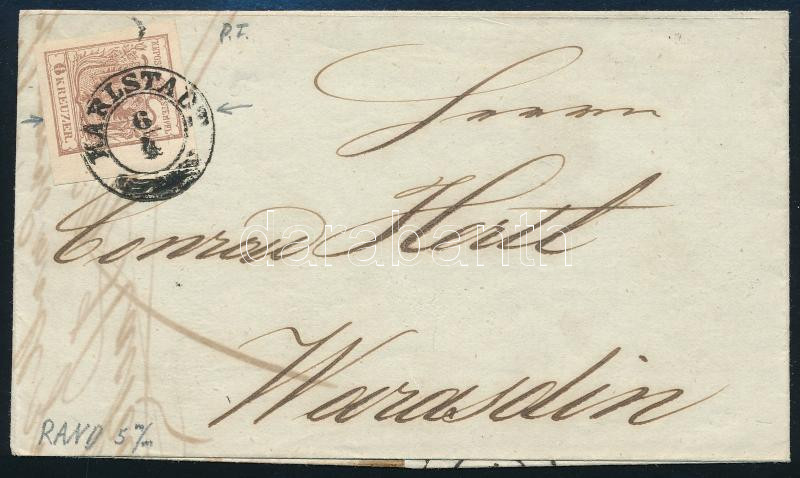 P.I.
6 KREUZER
KARLSTADT
6/4
Herrn
Conrad Hertt
Warasdin
darabanth
RAND 5 m/m